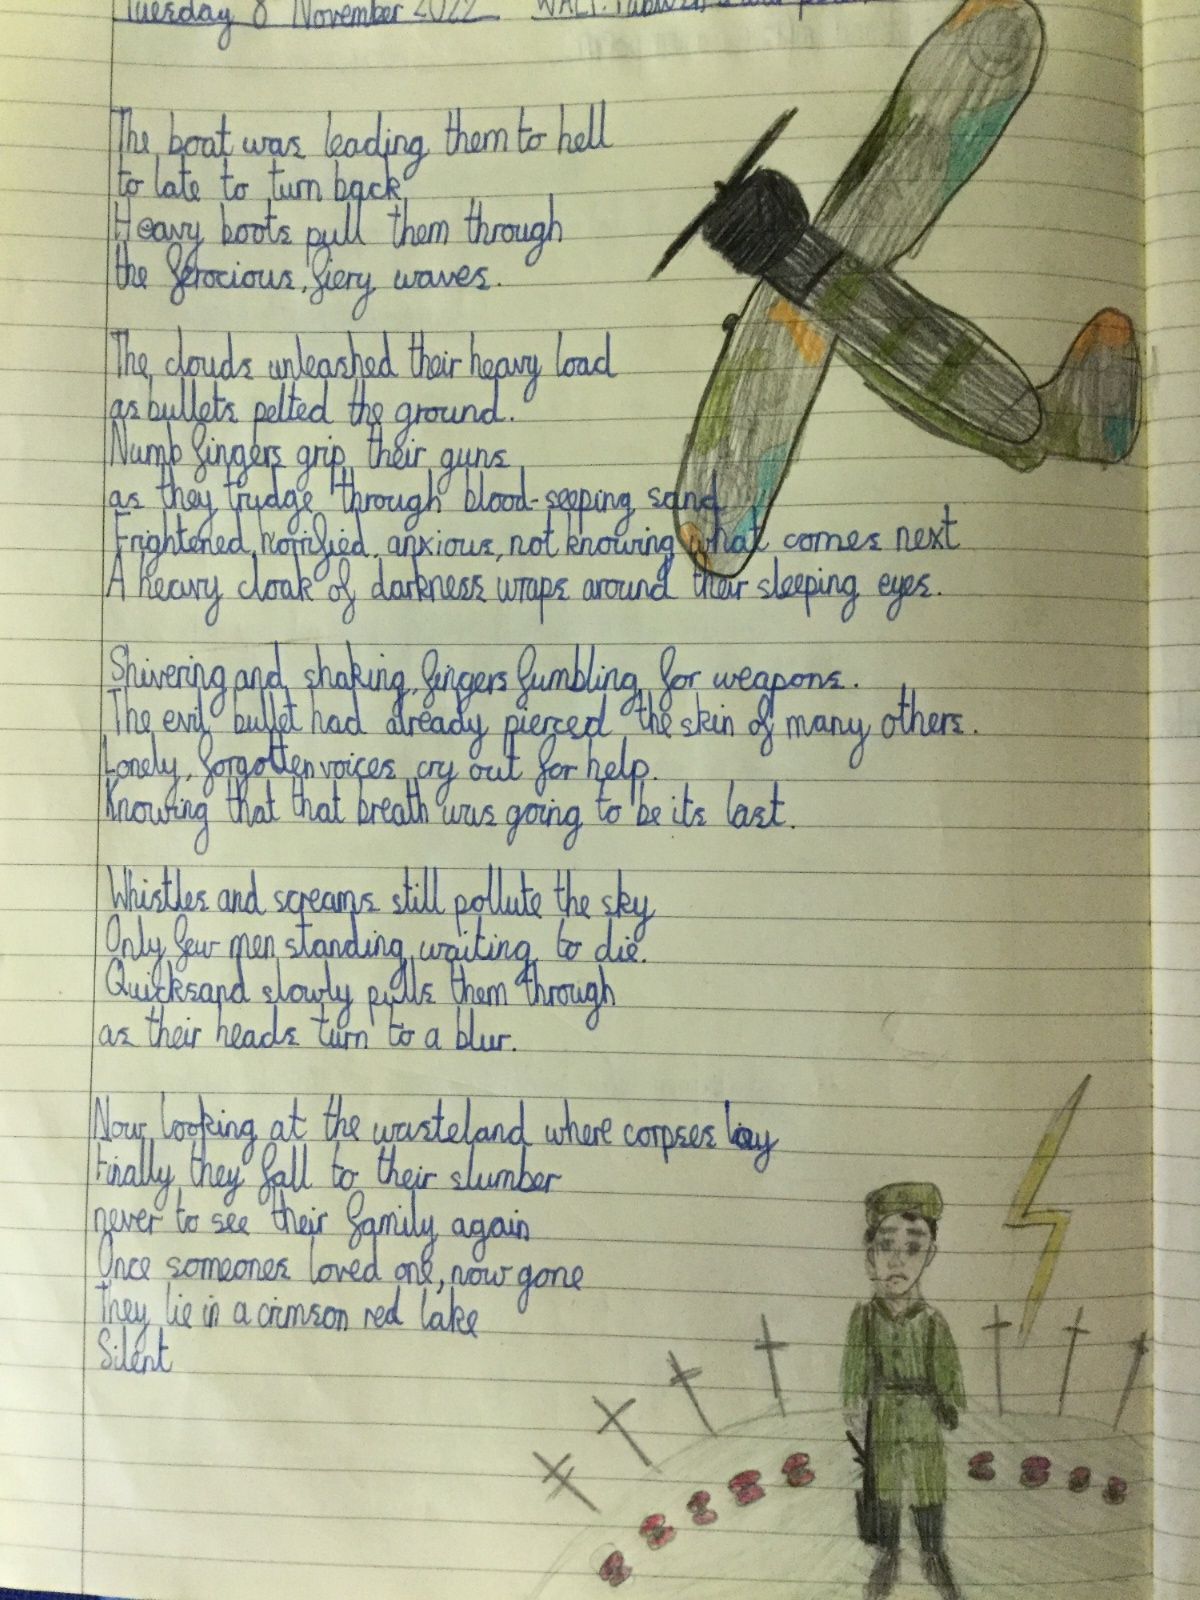 Tuesday 8 November 2022 WALT: Publish a war poem
The boat was leading them to hell
to late to turn back
Heavy boots pull them through
the ferocious, fiery waves.
The clouds unleashed their heavy load
as bullets pelted the ground.
Numb fingers grip their guns
as they trudge through blood-seeping sand
Frightened, horrified, anxious, not knowing what comes next
A heavy cloak of darkness wraps around their sleeping eyes.
Shivering and shaking, fingers fumbling for weapons.
The evil bullet had already pierced the skin of many others.
Lonely, forgotten voices cry out for help.
Knowing that that breath was going to be its last.
Whistles and screams still pollute the sky
Only few men standing, waiting to die.
Quicksand slowly pulls them through
as their heads turn to a blur.
Now looking at the wasteland where corpses lay
Finally they fall to their slumber
never to see their family again
Once someones loved one, now gone
They lie in a crimson red lake
Silent